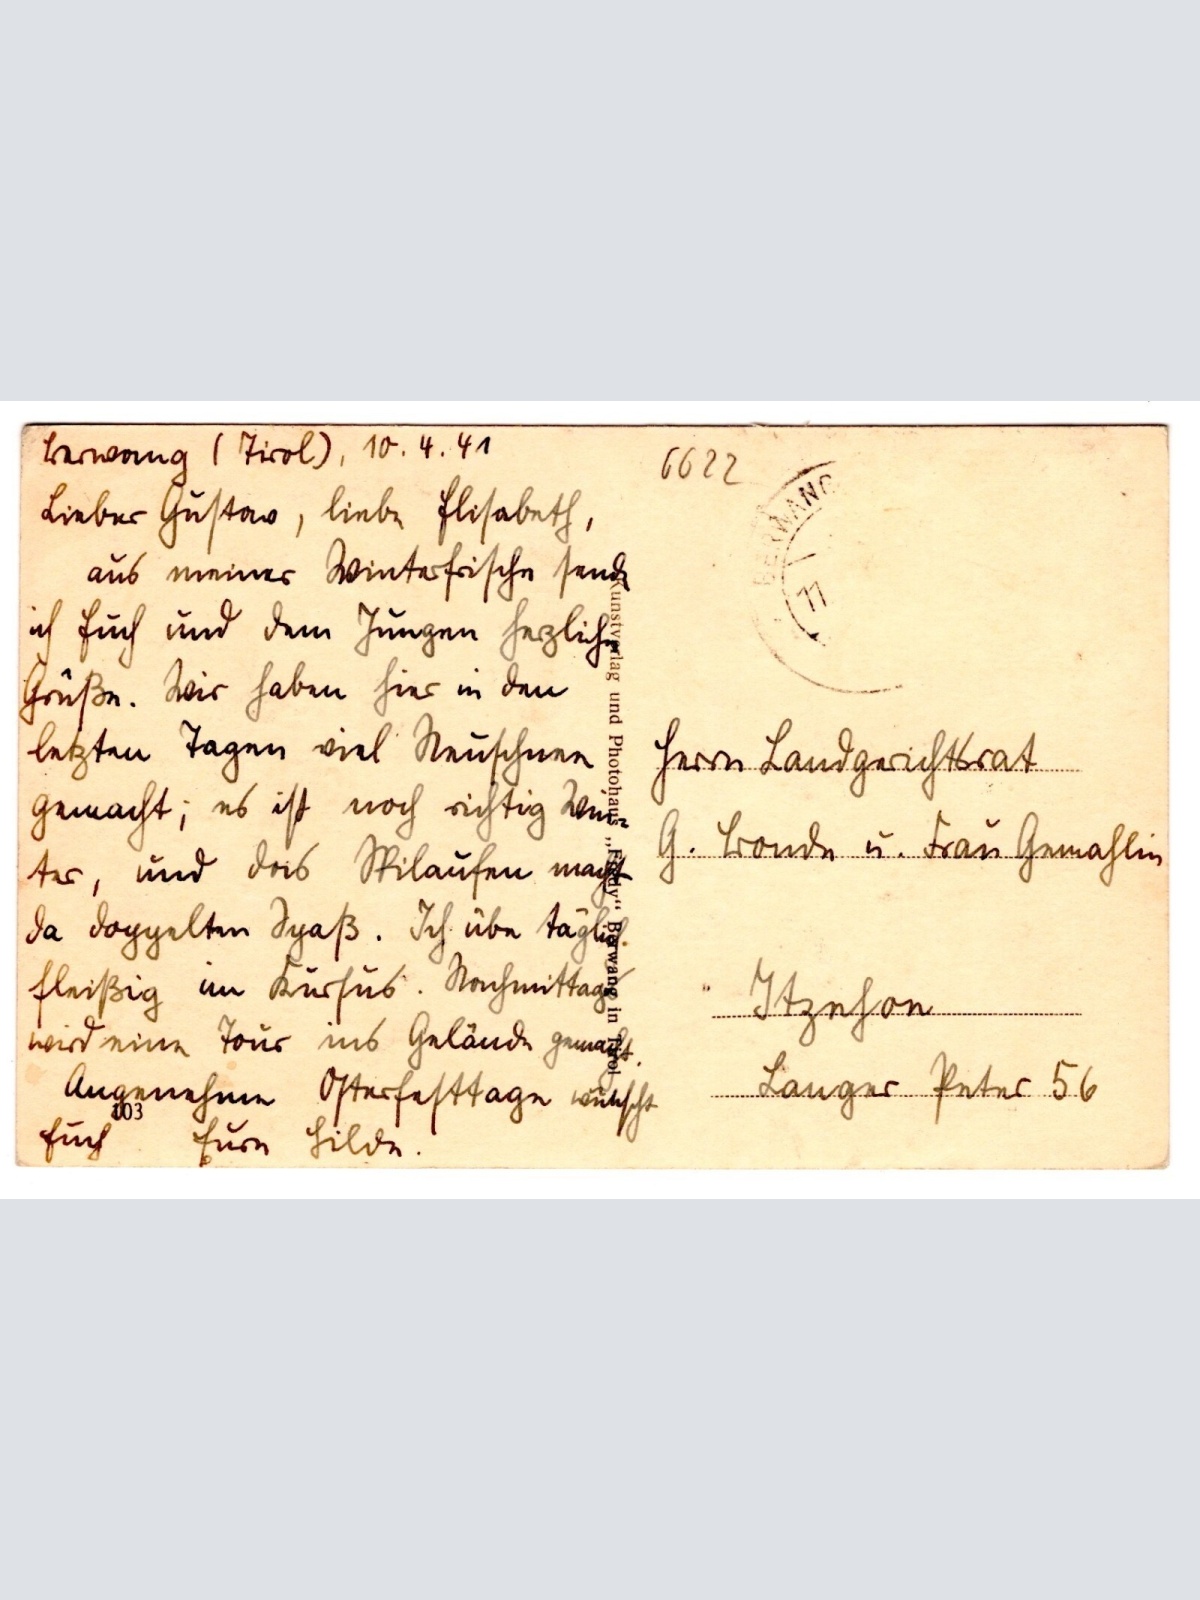 Berwang (Tirol), 10.4.41
Lieber Gustav, liebe Elisabeth,
aus meiner Winterfrische sende
ich Euch und dem Jungen herzliche
Grüße. Wir haben hier in den
letzten Tagen viel Neuschnee
gemacht; es ist noch richtig Win-
ter, und das Skilaufen macht
da doppelten Spaß. Ich übe täglich
fleißig im Kursus. Nachmittags
wird eine Tour ins Gelände gemacht.
Angenehme Osterfesttage wünscht
Euch Eure Hilde.
103
Kunstverlag und Photohaus „Fredy“ Berwang in Tirol
6622
BERWANG
11
Herrn Landgerichtsrat
G. Bronde u. Frau Gemahlin
Itzehoe
Langer Peter 56